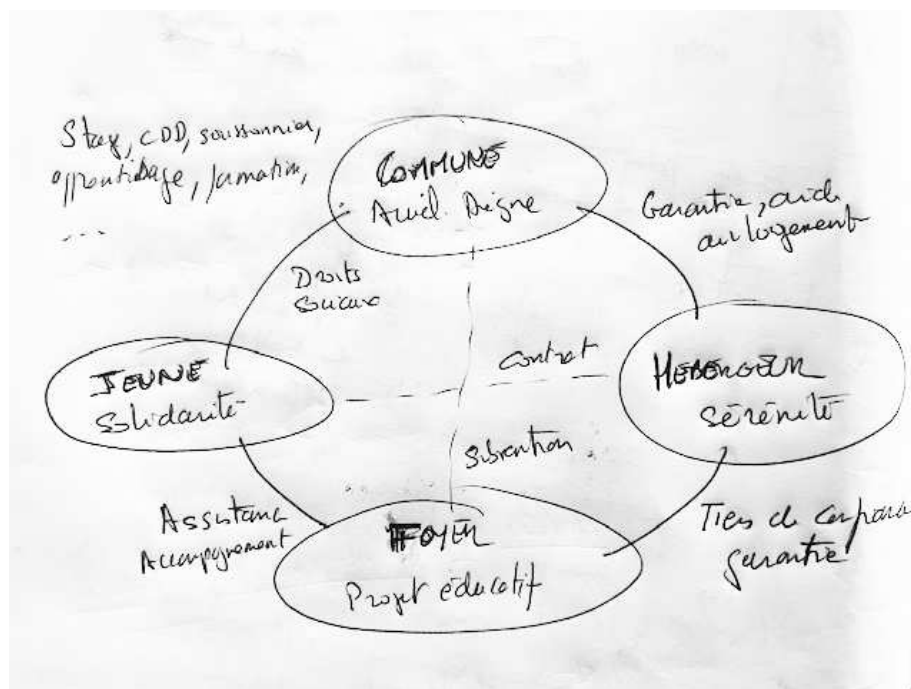 Stage, CDD, saisonnier,
apprentissage, formation,
...
COMMUNE
Accueil Digne
Garantie, aide
au logement
Droits
sociaux
JEUNE
Solidarité
contrat
HEBERGEUR
Sérénité
Subvention
Assistance
Accompagnement
FOYER
Projet éducatif
Tiers de
garantie